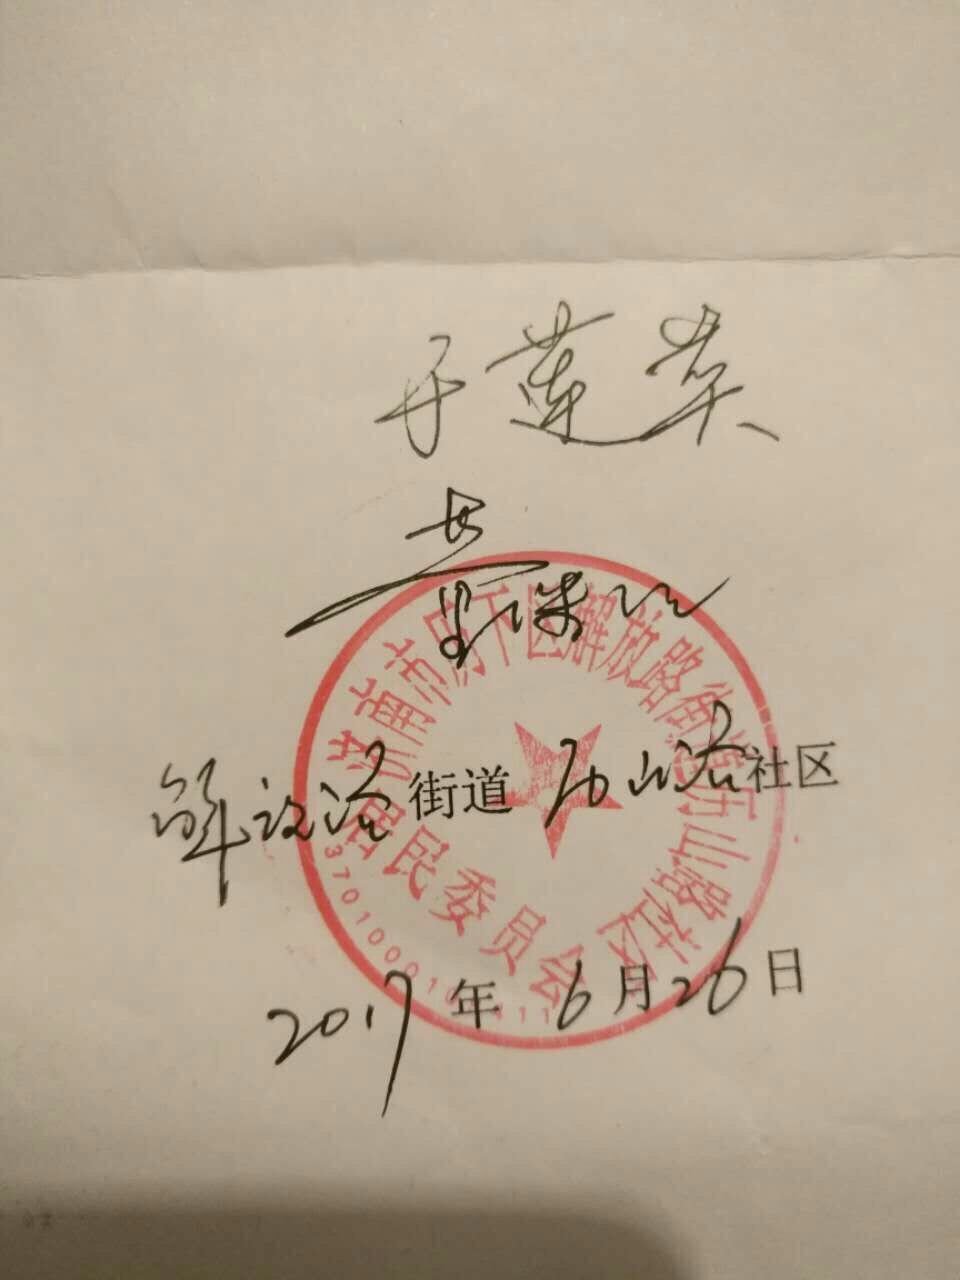 于莲英
解放路街道历山路社区
2017年6月26日
济南市历下区解放路街道历山路社区
居民委员会